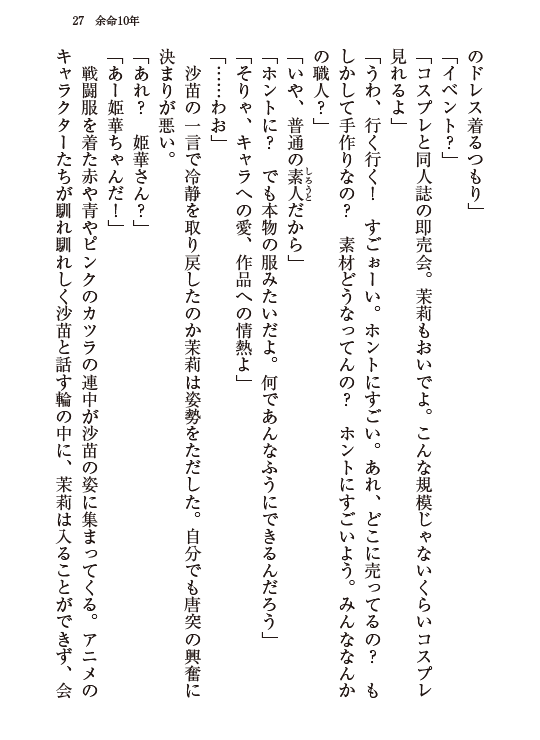 27　余命10年
のドレス着るつもり」
「イベント？」
「コスプレと同人誌の即売会。茉莉もおいでよ。こんな規模じゃないくらいコスプレ
見れるよ」
「うわ、行く行く！　すごぉーい。ホントにすごい。あれ、どこに売ってるの？　も
しかして手作りなの？　素材どうなってんの？　ホントにすごいよう。みんななんか
の職人？」
「いや、普通の素人だから」
しろうと
「ホントに？　でも本物の服みたいだよ。何であんなふうにできるんだろう」
「そりゃ、キャラへの愛、作品への情熱よ」
「……わお」
　沙苗の一言で冷静を取り戻したのか茉莉は姿勢をただした。自分でも唐突の興奮に
決まりが悪い。
「あれ？　姫華さん？」
「あー姫華ちゃんだ！」
　戦闘服を着た赤や青やピンクのカツラの連中が沙苗の姿に集まってくる。アニメの
キャラクターたちが馴れ馴れしく沙苗と話す輪の中に、茉莉は入ることができず、会